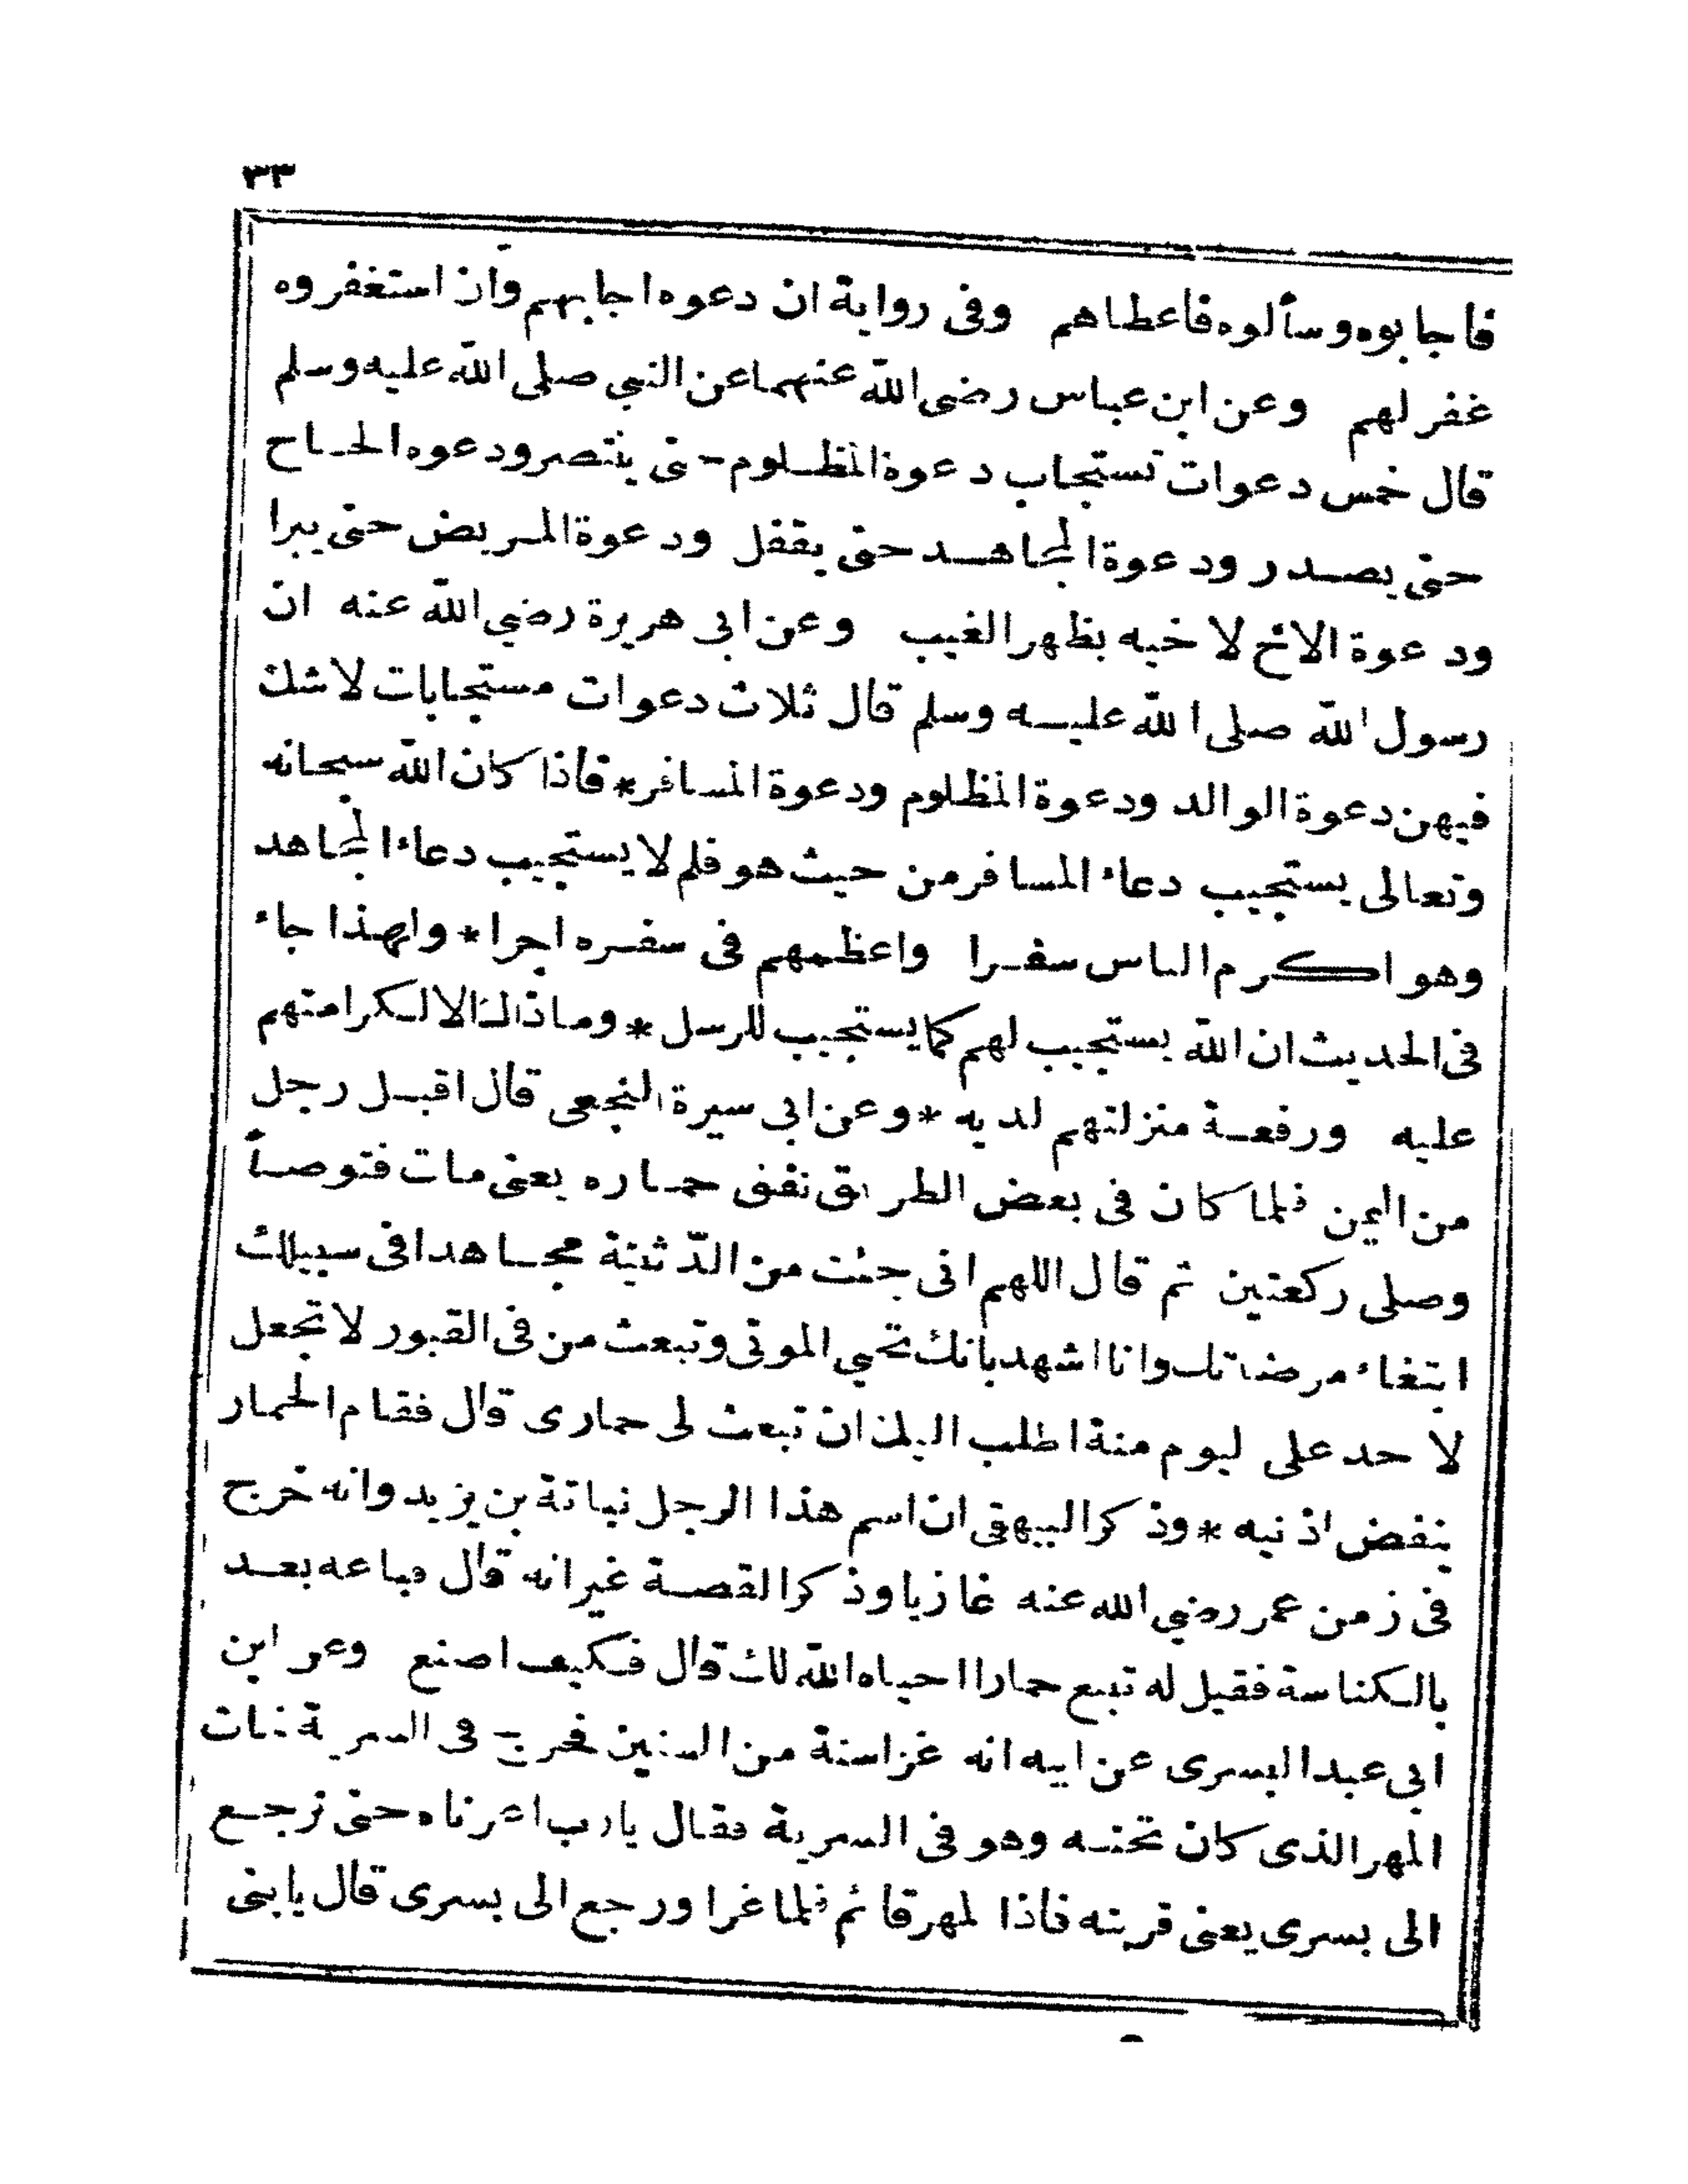 ٣٣
فاجابوه وسألوه فاعطاهم وفى رواية ان دعوه اجابهم وان استغفروه
غفر لهم وعن ابن عباس رضى الله عنهما عن النبى صلى الله عليه وسلم
قال خمس دعوات تستجاب دعوة المظلوم حتى ينتصر ودعوه الحاح
حتى يصدر ودعوة المجاهد حتى يقفل ودعوة المريض حتى يبرا
ودعوة الاخ لاخيه بظهر الغيب وعن ابى هريرة رضي الله عنه ان
رسول الله صلى الله عليه وسلم قال ثلاث دعوات مستجابات لاشك
فيهن دعوة الوالد ودعوة المظلوم ودعوة المسافر * فاذا كان الله سبحانه
وتعالى يستجيب دعاء المسافر من حيث هو فلم لا يستجيب دعاء المجاهد
وهو اكرم الناس سفرا واعظمهم فى سفره اجرا * ولهذا جاء
فى الحديث ان الله يستجيب لهم كما يستجيب للرسل * وما ذاك الا لكرامتهم
عليه ورفعة منزلتهم لديه * وعن ابى سبرة النخعى قال اقبل رجل
من اليمن فلما كان فى بعض الطريق نفق حماره يعنى مات فتوضأ
وصلى ركعتين ثم قال اللهم انى جئت من الدّثنية مجاهدا فى سبيلك
ابتغاء مرضاتك وانا اشهد بانك تحيي الموتى وتبعث من فى القبور لا تجعل
لاحد على ليوم منة اطلب اليك ان تبعث لى حمارى قال فقام الحمار
ينفض اذنيه * وذكر البيهقى ان اسم هذا الرجل نباتة بن يزيد وانه خرج
فى زمن عمر رضي الله عنه غازيا وذكر القصة غير انه قال فباعه بعد
بالكناسة فقيل له تبيع حمارا احياه الله لك قال فكيف اصنع وعن ابن
ابى عبد البسرى عن ابيه انه غزا سنة من السنين فخرج فى السرية فمات
المهر الذى كان تحته وهو فى السرية فقال يا رب اعرناه حتى نرجع
الى بسرى يعنى قريته فاذا لمهر قائم فلما غزا ورجع الى بسرى قال يا بنى